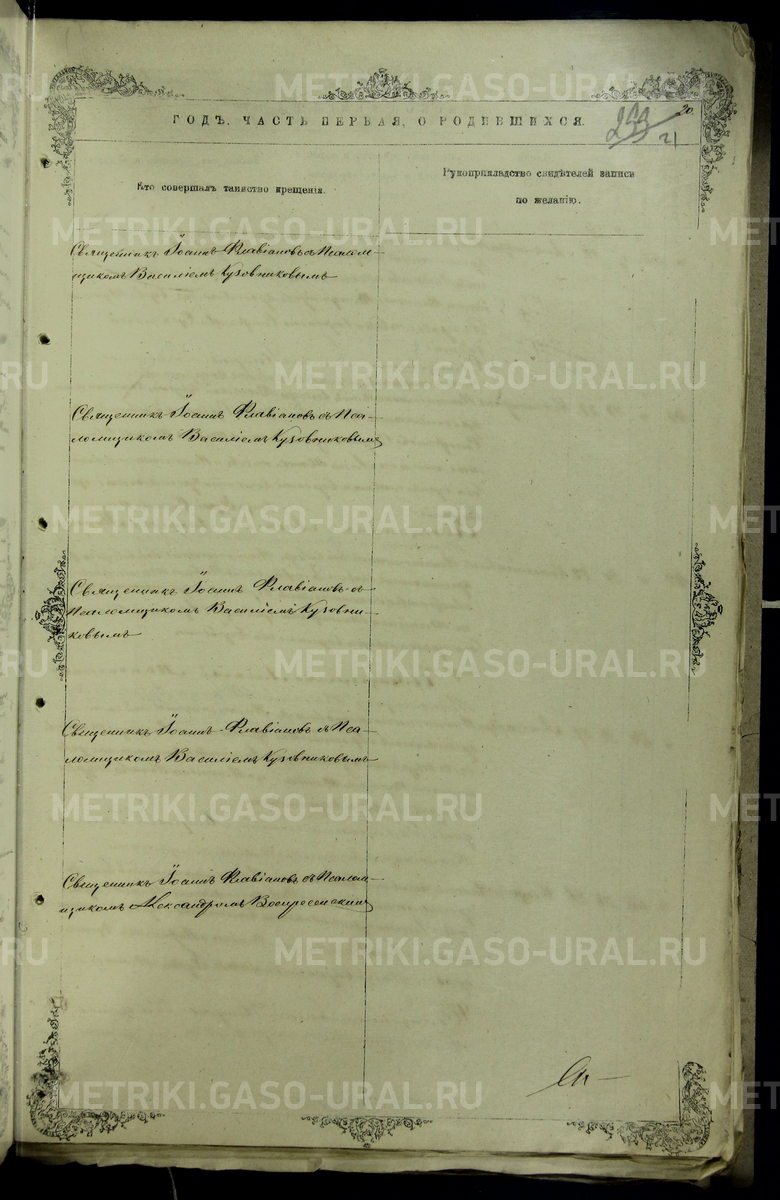 METRIKI.GASO-URAL.RU
ГОДЪ. ЧАСТЬ ПЕРВАЯ, О РОДИВШИХСЯ.
20.
21
Кто совершалъ таинство крещенія.
Рукоприкладство свидѣтелей записи
по желанію.
Священникъ Іоаннъ Флавіановъ съ Псалом-
щикомъ Василіемъ Кузовниковымъ
Священникъ Іоаннъ Флавіановъ съ Пса-
ломщикомъ Василіемъ Кузовниковымъ
Священникъ Іоаннъ Флавіановъ съ
Псаломщикомъ Василіемъ Кузовни-
ковымъ
Священникъ Іоаннъ Флавіановъ съ Пса-
ломщикомъ Василіемъ Кузовниковымъ
Священникъ Іоаннъ Флавіановъ съ Псалом-
щикомъ Александромъ Воскресенскимъ